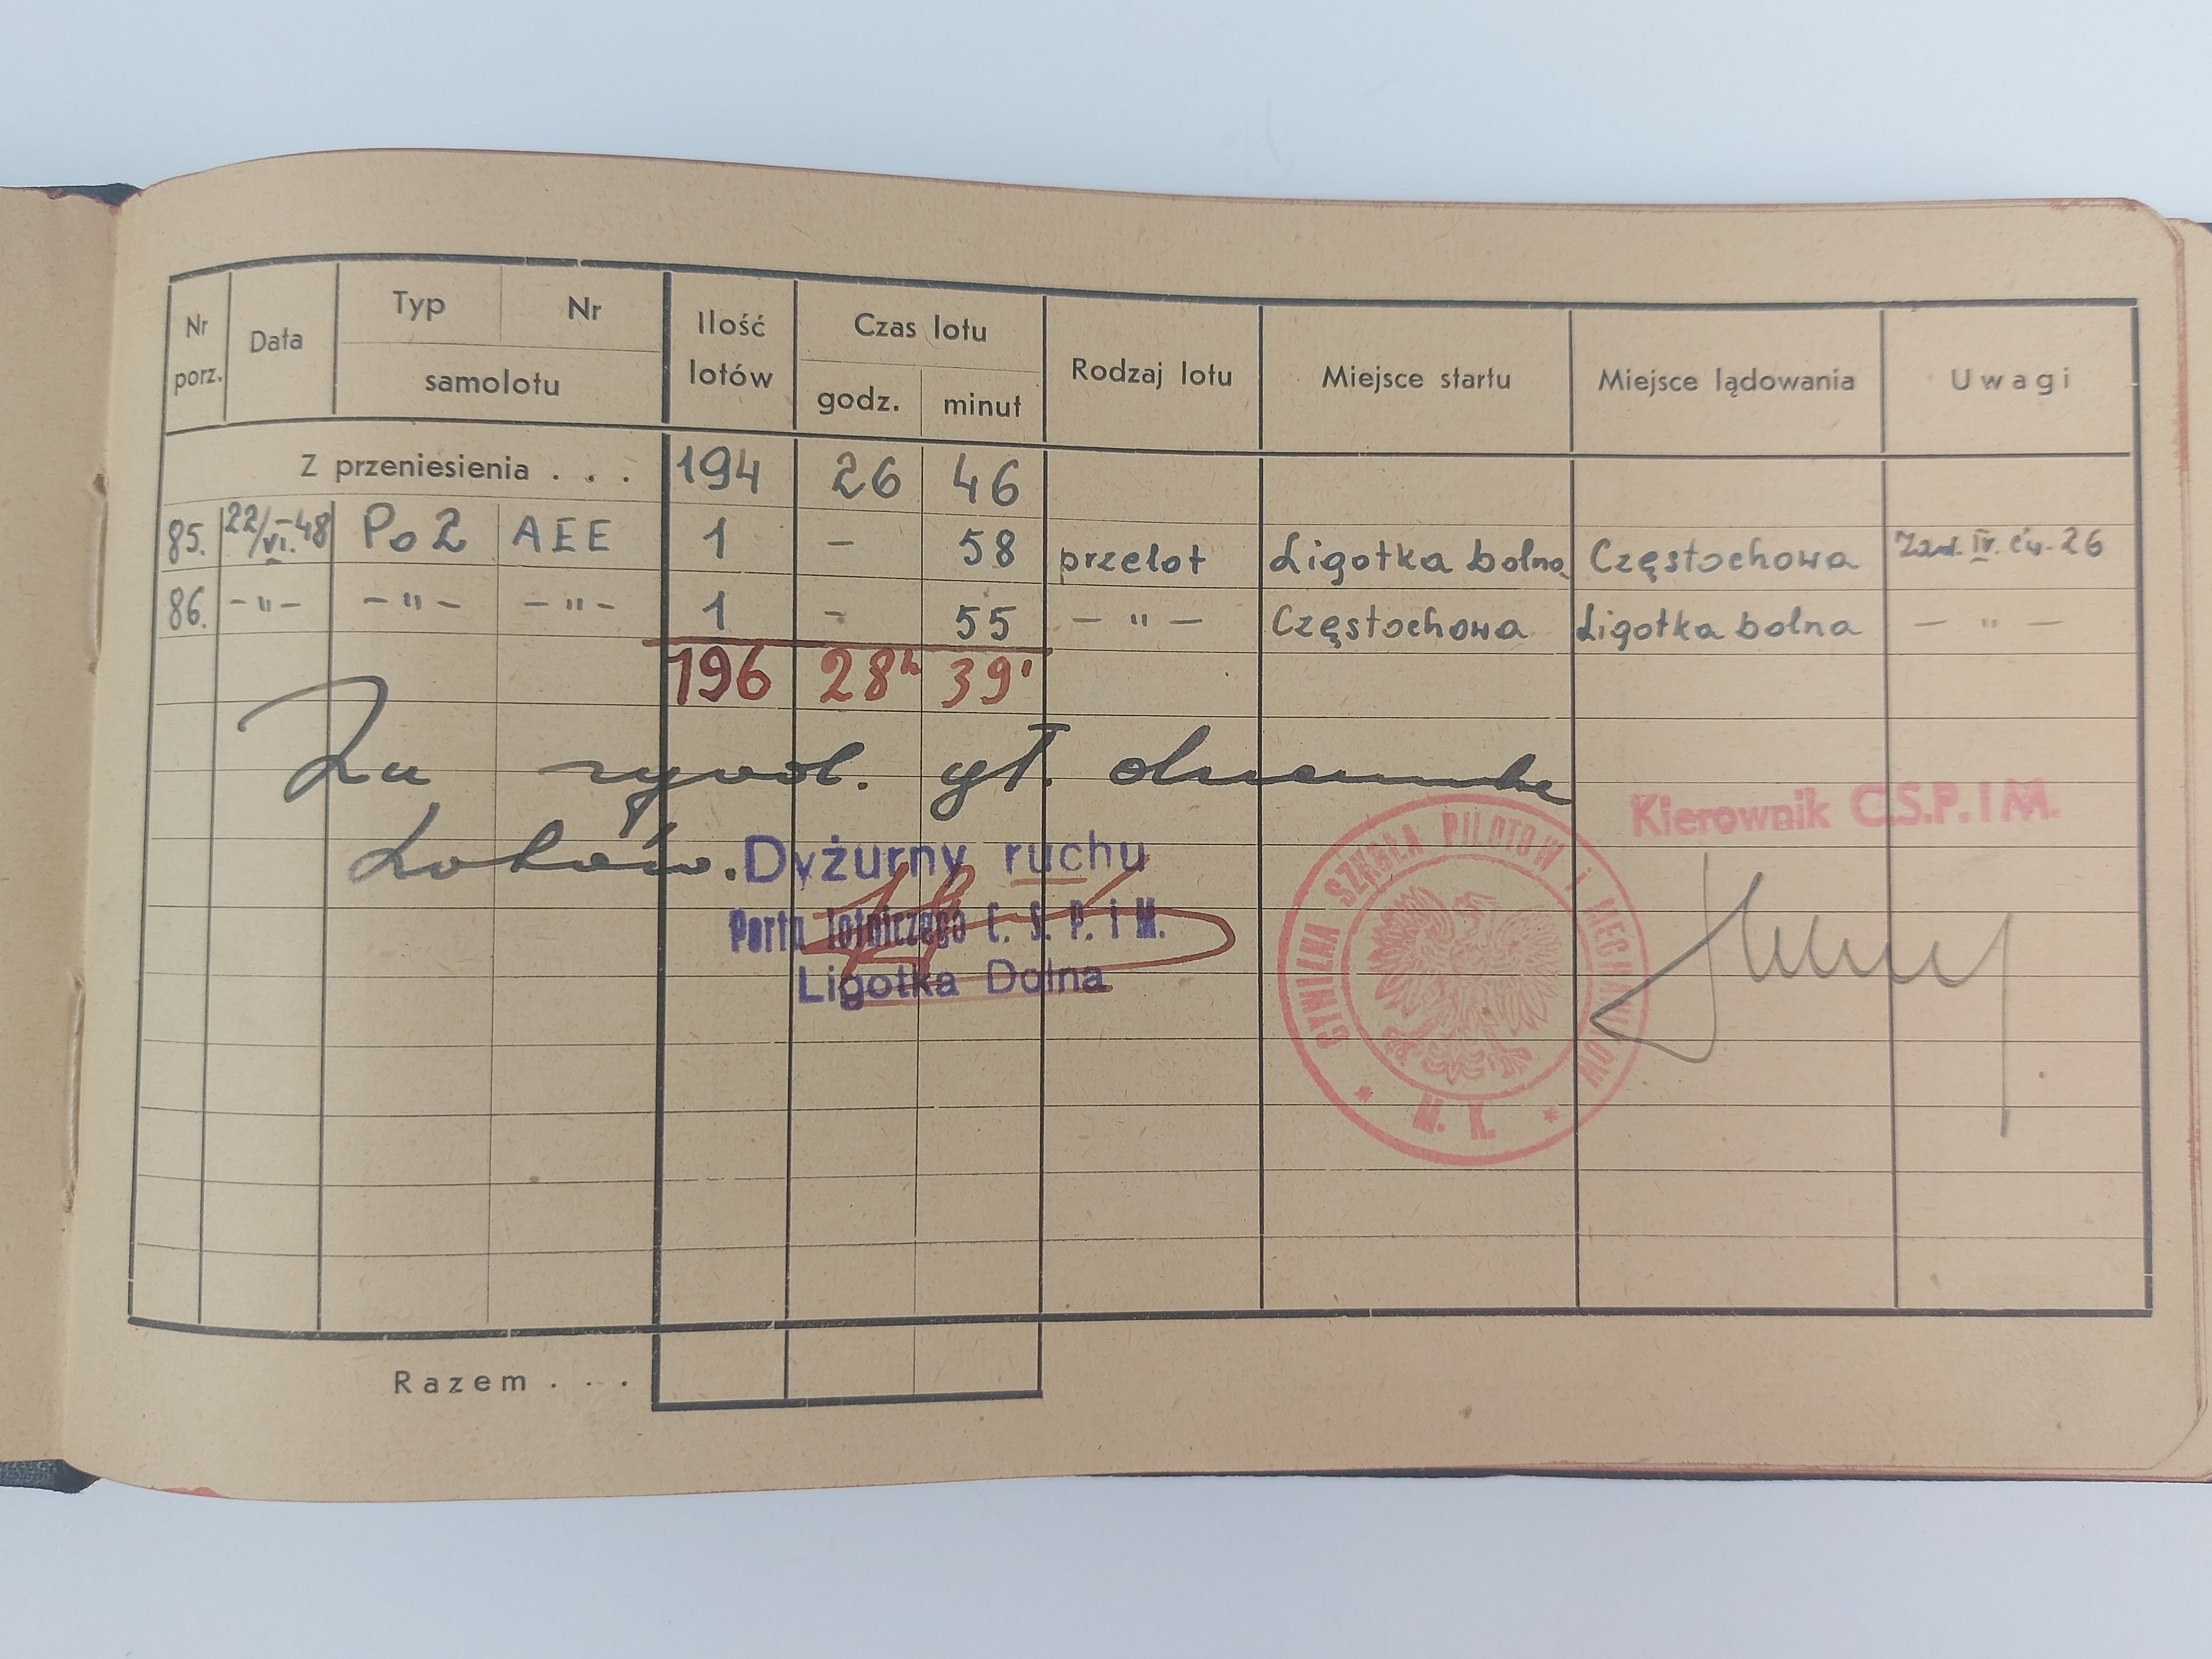 Nr porz. Data Typ Nr samolotu Ilość lotów Czas lotu godz. minut Rodzaj lotu Miejsce startu Miejsce lądowania Uwagi
Z przeniesienia . . . 194 26 46
85. 22/VI.-48 Po2 AEE 1 - 58 przelot Ligotka Dolna Częstochowa Zad. IV. ćw. 26
86. -"- -"- -"- 1 - 55 -"- Częstochowa Ligotka Dolna -"-
196 28h 39'
Za
Dyżurny ruchu
Portu lotniczego C. S. P. i M.
Ligotka Dolna
Kierownik C.S.P. I M.
CYWILNA SZKOŁA PILOTÓW I MECHANIKÓW
* M. K. *
Razem . . .